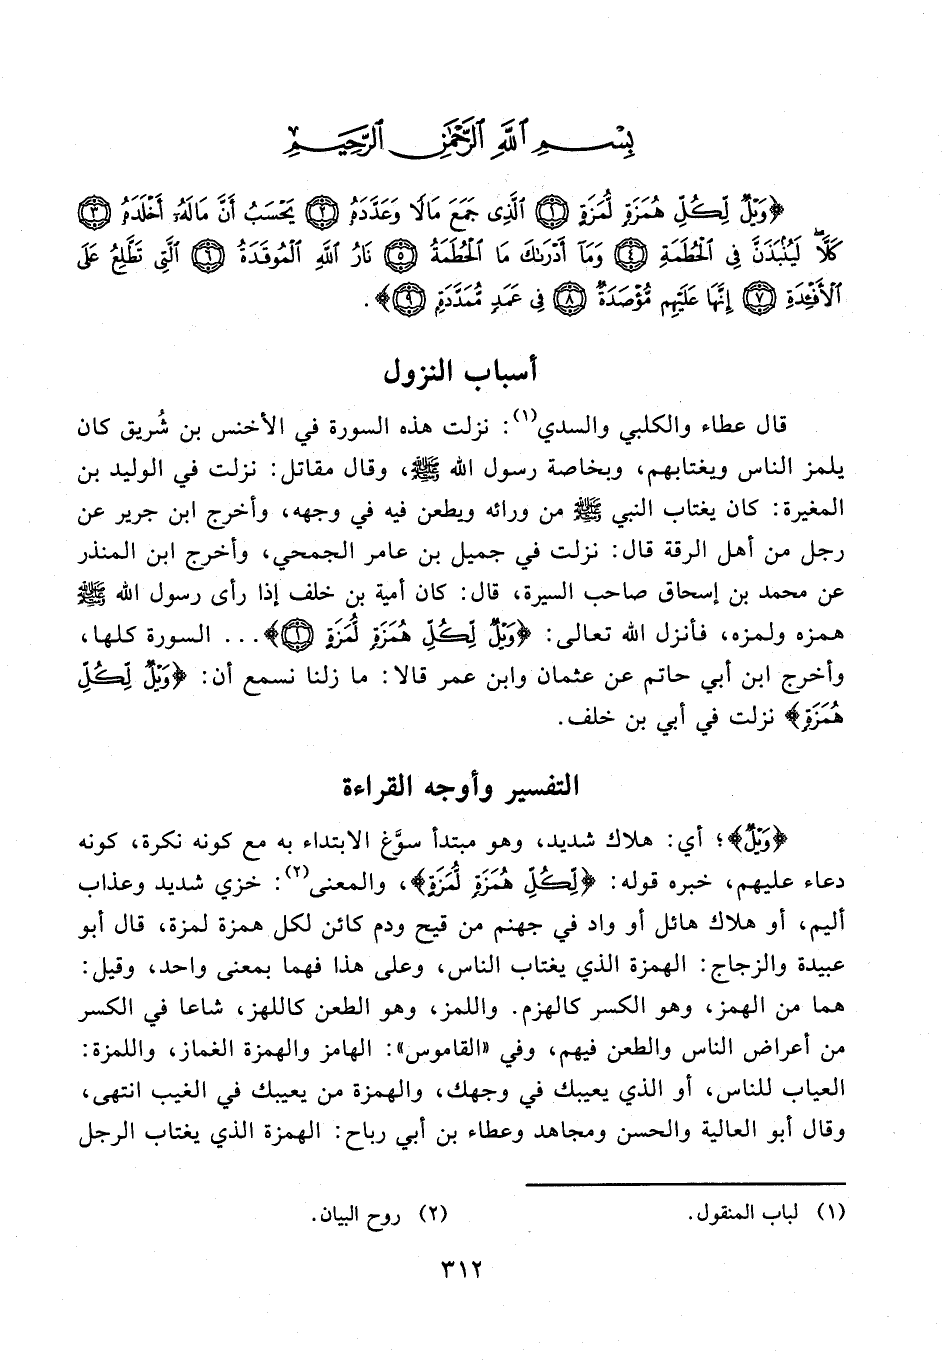 بِسْمِ ٱللَّهِ ٱلرَّحْمَٰنِ ٱلرَّحِيمِ
﴿وَيْلٌ لِّكُلِّ هُمَزَةٍ لُّمَزَةٍ ١ ٱلَّذِى جَمَعَ مَالًا وَعَدَّدَهُۥ ٢ يَحْسَبُ أَنَّ مَالَهُۥٓ أَخْلَدَهُۥ ٣
كَلَّا ۖ لَيُنۢبَذَنَّ فِى ٱلْحُطَمَةِ ٤ وَمَآ أَدْرَىٰكَ مَا ٱلْحُطَمَةُ ٥ نَارُ ٱللَّهِ ٱلْمُوقَدَةُ ٦ ٱلَّتِى تَطَّلِعُ عَلَى
ٱلْأَفْـِٔدَةِ ٧ إِنَّهَا عَلَيْهِم مُّؤْصَدَةٌ ٨ فِى عَمَدٍ مُّمَدَّدَةٍۭ ٩﴾.
أسباب النزول
قال عطاء والكلبي والسدي(١): نزلت هذه السورة في الأخنس بن شُريق كان
يلمز الناس ويغتابهم، وبخاصة رسول الله ﷺ، وقال مقاتل: نزلت في الوليد بن
المغيرة: كان يغتاب النبي ﷺ من ورائه ويطعن فيه في وجهه، وأخرج ابن جرير عن
رجل من أهل الرقة قال: نزلت في جميل بن عامر الجمحي، وأخرج ابن المنذر
عن محمد بن إسحاق صاحب السيرة، قال: كان أمية بن خلف إذا رأى رسول الله ﷺ
همزه ولمزه، فأنزل الله تعالى: ﴿وَيْلٌ لِّكُلِّ هُمَزَةٍ لُّمَزَةٍ ١﴾... السورة كلها،
وأخرج ابن أبي حاتم عن عثمان وابن عمر قالا: ما زلنا نسمع أن: ﴿وَيْلٌ لِّكُلِّ
هُمَزَةٍ﴾ نزلت في أبي بن خلف.
التفسير وأوجه القراءة
﴿وَيْلٌ﴾؛ أي: هلاك شديد، وهو مبتدأ سوَّغ الابتداء به مع كونه نكرة، كونه
دعاء عليهم، خبره قوله: ﴿لِّكُلِّ هُمَزَةٍ لُّمَزَةٍ﴾، والمعنى(٢): خزي شديد وعذاب
أليم، أو هلاك هائل أو واد في جهنم من قيح ودم كائن لكل همزة لمزة، قال أبو
عبيدة والزجاج: الهمزة الذي يغتاب الناس، وعلى هذا فهما بمعنى واحد، وقيل:
هما من الهمز، وهو الكسر كالهزم. واللمز، وهو الطعن كاللهز، شاعا في الكسر
من أعراض الناس والطعن فيهم، وفي «القاموس»: الهامز والهمزة الغماز، واللمزة:
العياب للناس، أو الذي يعيبك في وجهك، والهمزة من يعيبك في الغيب انتهى،
وقال أبو العالية والحسن ومجاهد وعطاء بن أبي رباح: الهمزة الذي يغتاب الرجل
(١) لباب المنقول. (٢) روح البيان.
٣١٢